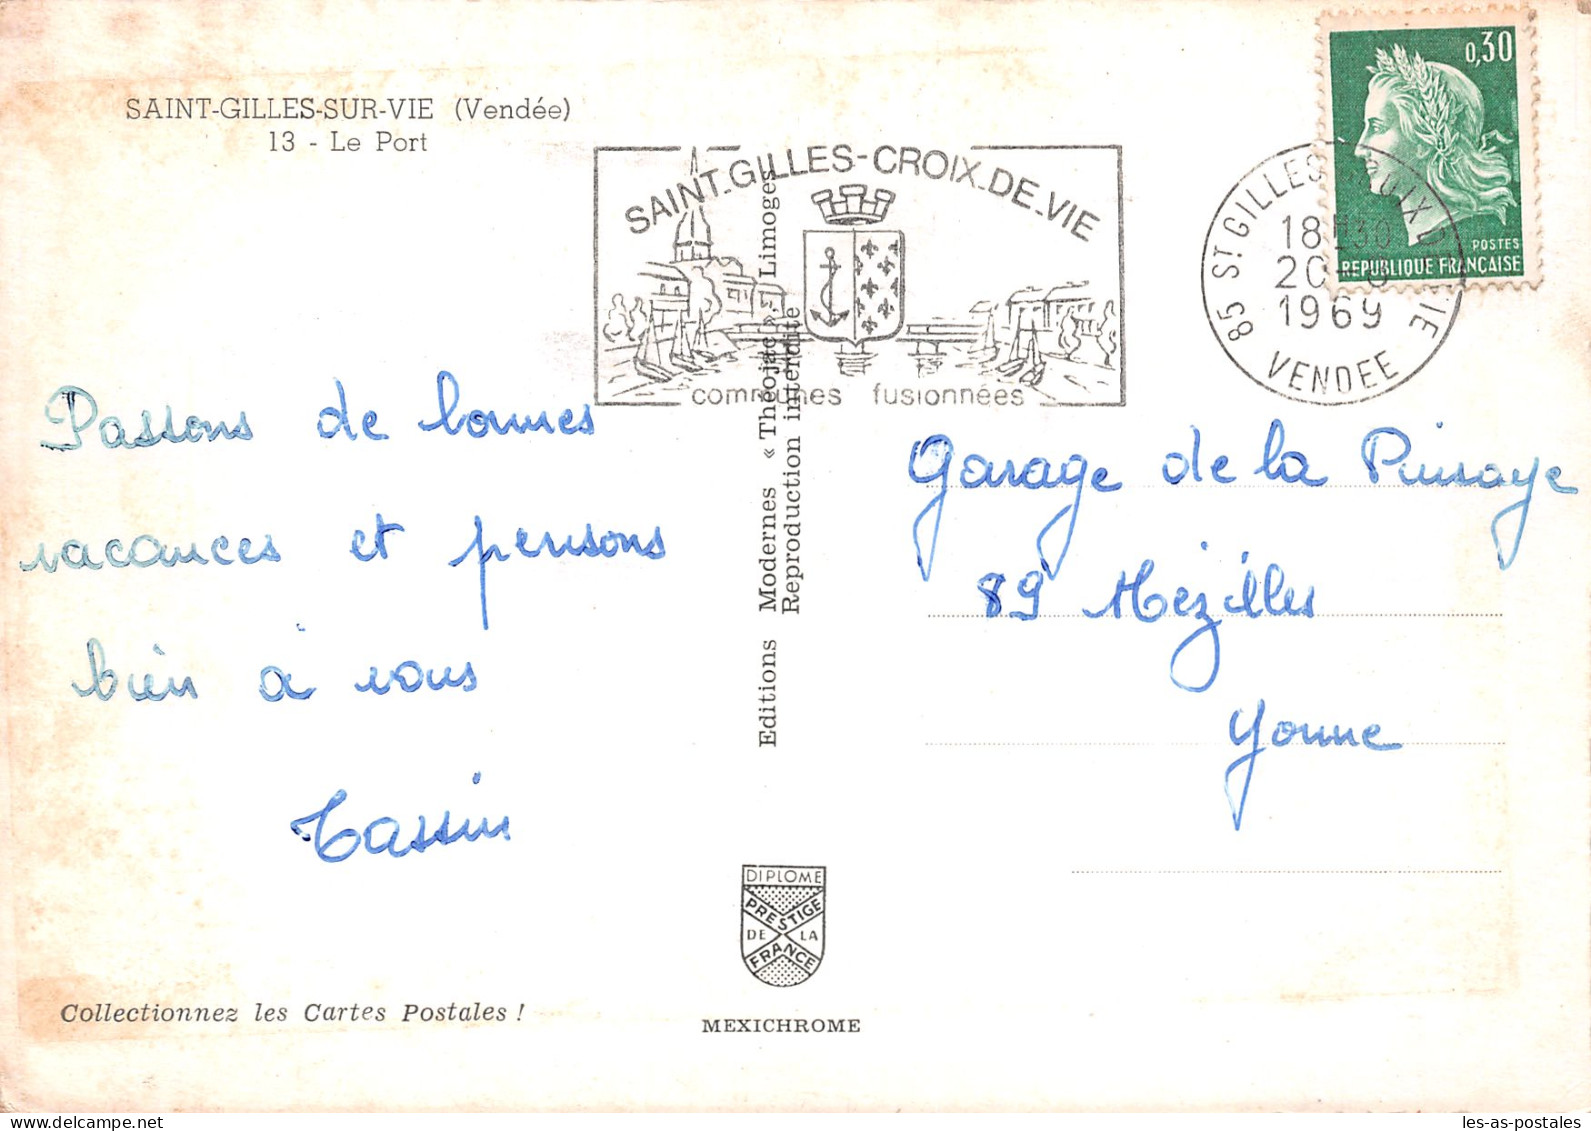 SAINT-GILLES-SUR-VIE (Vendée)
13 - Le Port
SAINT-GILLES-CROIX-DE-VIE
communes fusionnées
0,30
POSTES
REPUBLIQUE FRANÇAISE
85 ST GILLES CROIX DE VIE
18H30
20-
1969
VENDEE
Passons de bonnes
vacances et pensons
bien à vous
Tassin
Editions Modernes « Théojac », Limoges
Reproduction interdite
Garage de la Puisaye
89 Mézilles
Yonne
DIPLOME
PRESTIGE
DE LA
FRANCE
MEXICHROME
Collectionnez les Cartes Postales !
les-as-postales.com